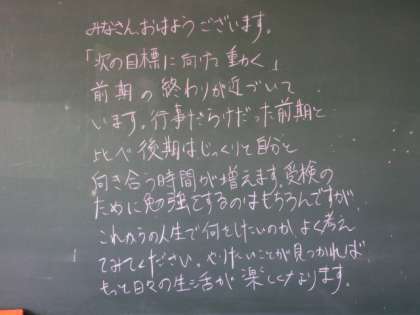 みなさん、おはようございます。
「次の目標に向けて動く」
前期の終わりが近づいて
います。行事だらけだった前期と
比べ後期はじっくりと自分と
向き合う時間が増えます。受検の
ために勉強をするのはもちろんですが、
これからの人生で何をしたいのか、よく考え
てみてください。やりたいことが見つかれば
もっと日々の生活が楽しくなります。